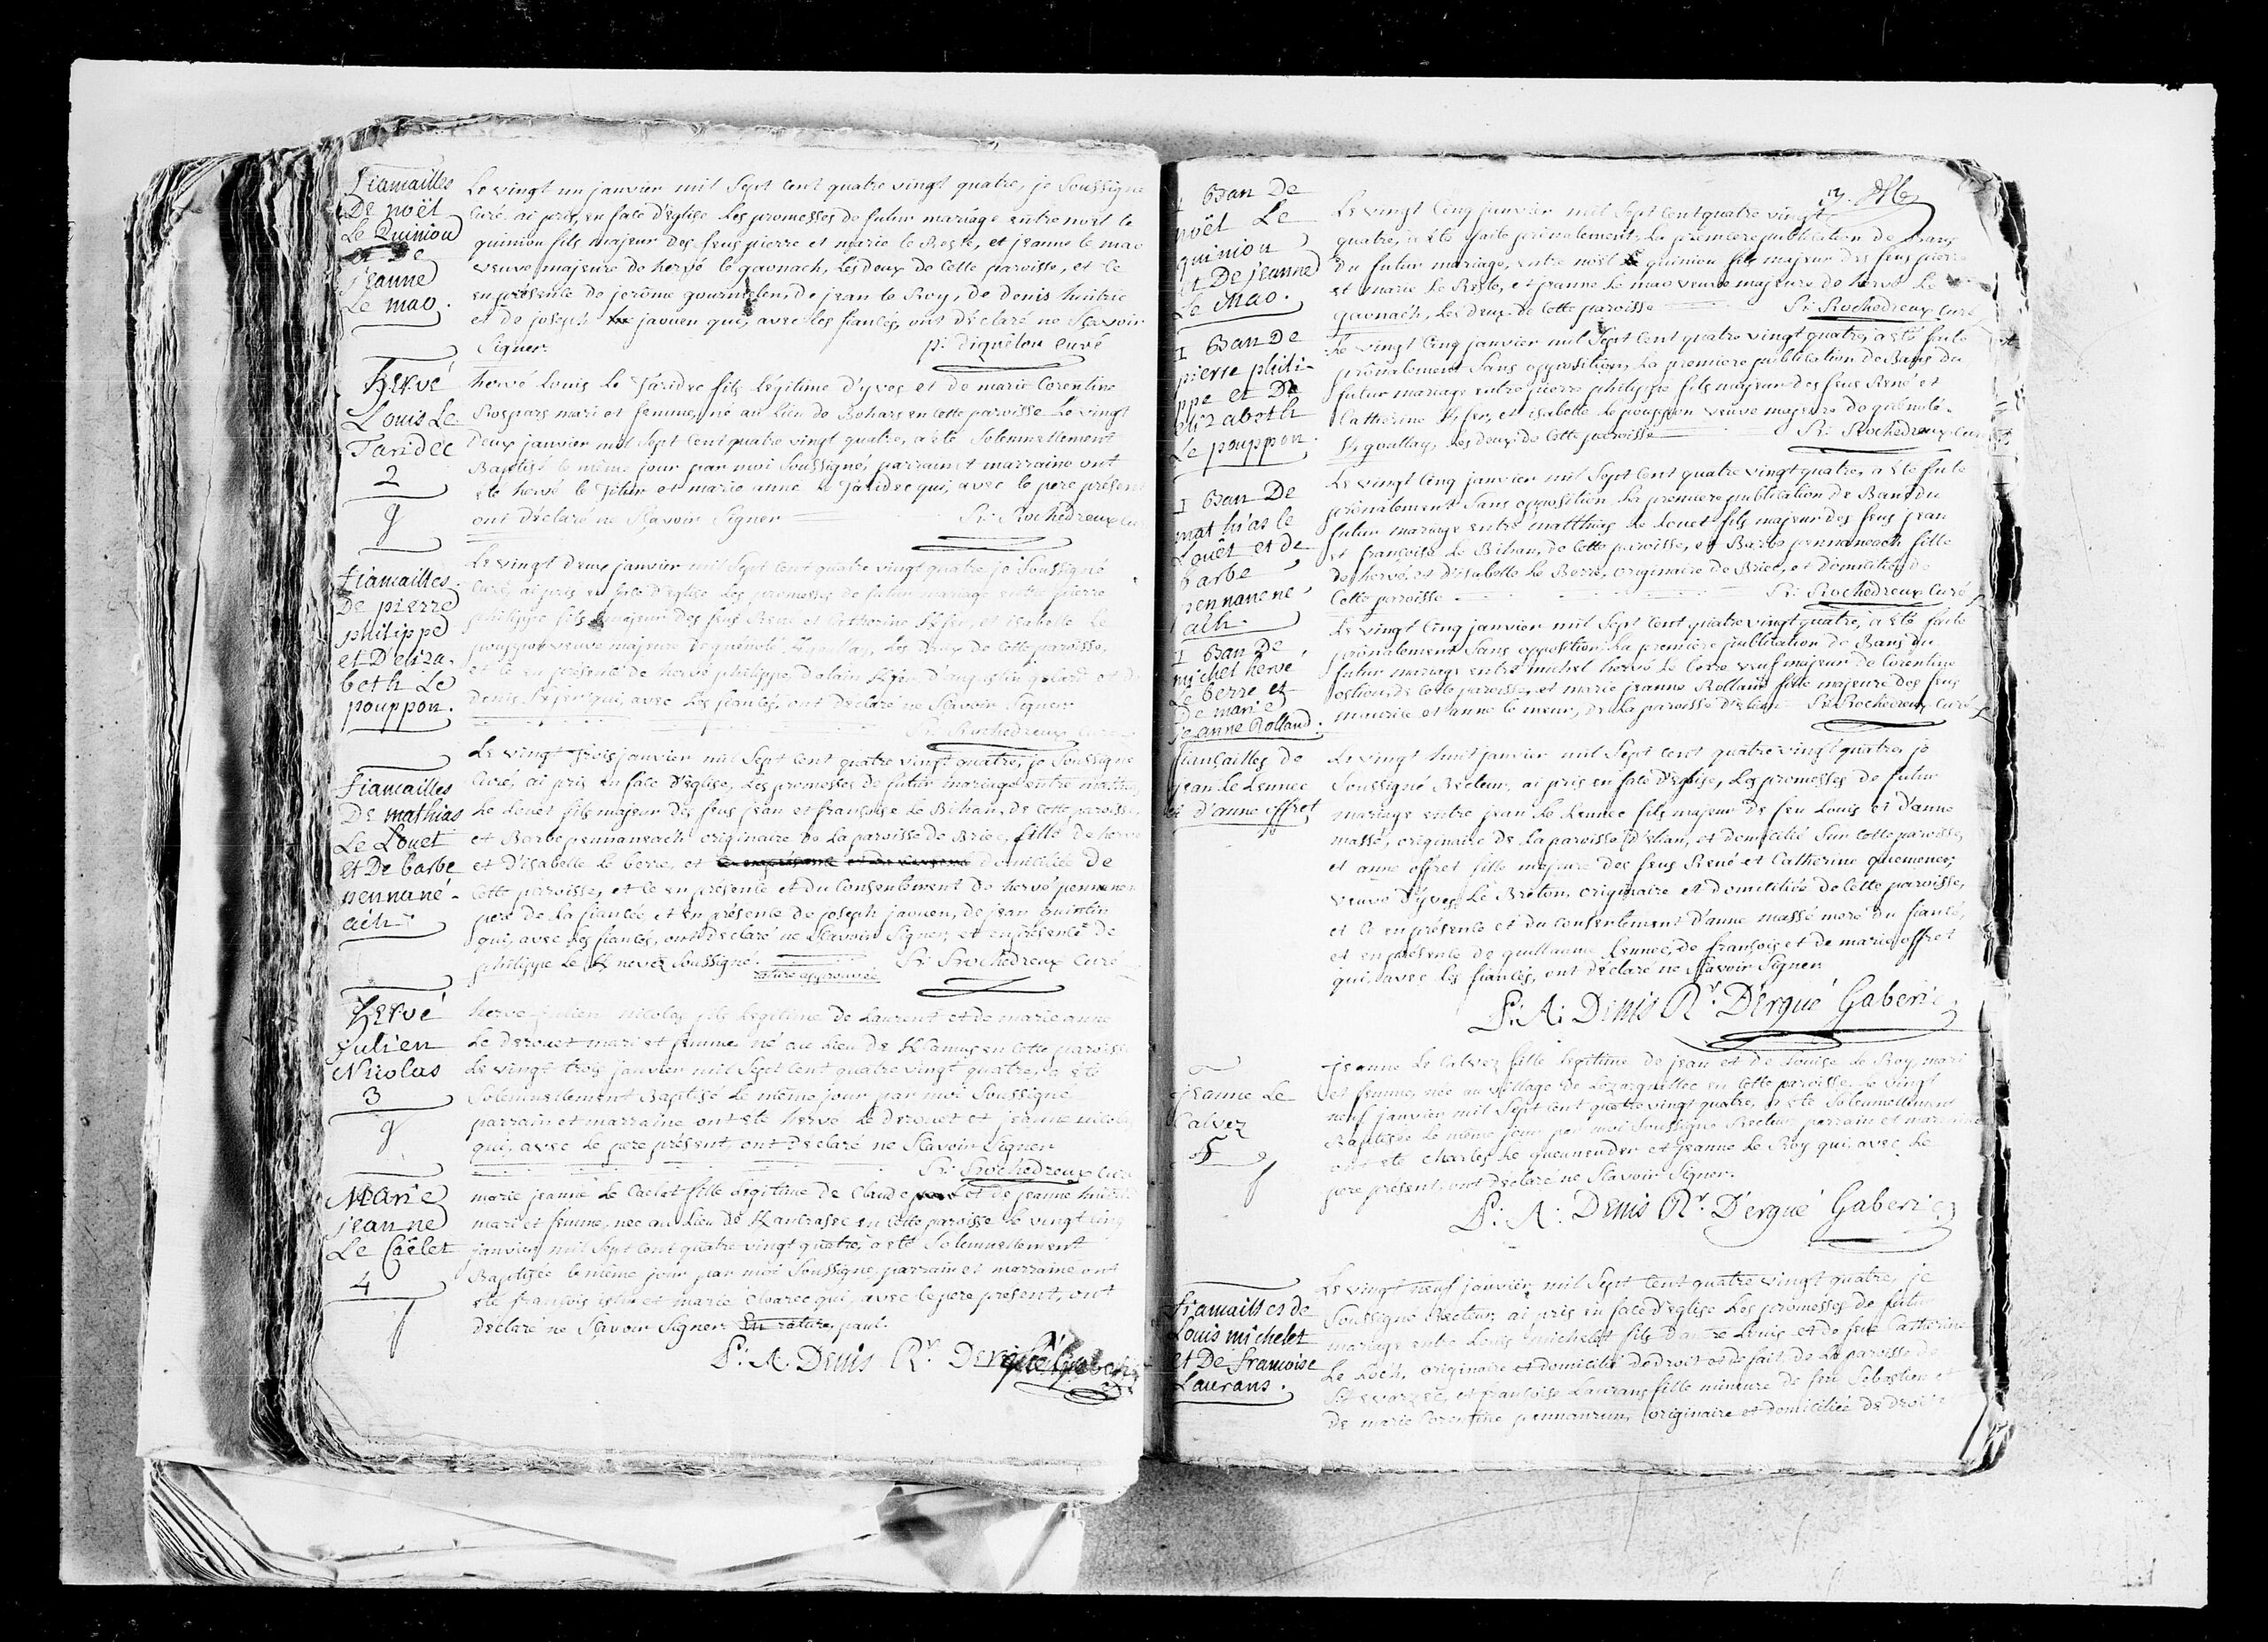 fiancailles
De noël
Le Quiniou
et De
jeanne
Le mao.
Le vingt un janvier mil Sept cent quatre vingt quatre, je Soussigné
Curé, ai pris en face d'Eglise Les promesses de futur mariage entre noël le
quiniou fils majeur des feus pierre et marie le Reste, et jeanne le mao
veuve majeure de hervé le gaonach, Les deux de Cette paroisse, et ce
en présence de jerôme gourmelen, de jean le Roy, de denis huitric
et de joseph jaouen qui, avec les fiancés, ont déclaré ne Scavoir
Signer. p: diquélou curé
hervé
Louis Le
Taridec
2
g
hervé Louis Le Taridec fils Légitime d'yves et de marie Corentine
Rospars mari et femme, né au Lieu de Bohars en Cette paroisse Le vingt
Deux janvier mil Sept Cent quatre vingt quatre, a été Solemnellement
Baptisé le même jour par moi Soussigné, parrain et marraine ont
été hervé le et marie anne le Taridec qui, avec le pere présent
ont Déclaré ne Scavoir Signer Rochedreux
fiancailles
De pierre
philippe
et D'eliza-
beth Le
pouppon.
Le vingt deux janvier mil Sept Cent quatre vingt quatre, je Soussigné
Curé, ai pris en face d'Eglise Les promesses de futur mariage entre pierre
philippe fils majeur des feus René et Catherine et isabelle Le
pouppon veuve majeure de guénolé Les Deux de Cette paroisse,
et ce en présence de hervé philippe, d'alain d'augustin et de
denis qui, avec Les fiancés, ont déclaré ne Scavoir Signer
Rochedreux Curé
fiancailles
De mathias
Le Louet
et De barbe
pennané-
ach
Le vingt Trois janvier mil Sept Cent quatre vingt quatre, je Soussigné
Curé, ai pris en face d'Eglise, Les promesses de futur mariage entre mathias
Le Louet fils majeur des feus jean et françoise Le Bihan, de Cette paroisse,
et Barbe pennaneach originaire de La paroisse de Briec, fille de hervé
et D'isabelle Le berre, et domiciliée de
Cette paroisse, et ce en présence et du Consentement de hervé pennaneach
pere de La fiancée, et en présence de joseph jaouen, de jean quintin
qui, avec Les fiancés, ont déclaré ne Scavoir Signer, et en présence de
philippe Le nevez Soussigné. Rochedreux Curé
rature approuvée
hervé
Julien
Nicolas
3
g
hervé julien nicolas fils Legitime De Laurent et de marie anne
Le Derouet mari et femme, né au Lieu de en Cette paroisse
Le vingt trois janvier mil Sept Cent quatre vingt quatre, a été
Solemnellement Baptisé Le même jour par moi Soussigné
parrain et marraine ont été hervé Le Derouet et jeanne nicolas
qui, avec Le pere présent, ont déclaré ne Scavoir Signer
Rochedreux Curé
Marie
jeanne
Le Caëlet
4
f
marie jeanne Le Caelet fille Legitime de Claude et de jeanne
mari et femme, née au Lieu de en Cette paroisse Le vingt Cinq
janvier mil Sept Cent quatre vingt quatre, a été Solemnellement
Baptisée le même jour par moi Soussigné, parrain et marraine ont
été françois et marie qui, avec le pere présent, ont
déclaré ne Scavoir Signer. En rature, paul.
A. Denis Rr. D'ergué gaberic
3.
1 Ban De
noël Le
quiniou
et De jeanne
Le Mao.
Le vingt Cinq janvier mil Sept Cent quatre vingt
quatre, a été faite prônalement, La premiere publication de Bans
du futur mariage, entre noël Le quiniou fils majeur des feus pierre
et marie Le Reste, et jeanne Le mao veuve majeure de hervé Le
gaonach, Les Deux de Cette paroisse Rochedreux Curé
1 Ban De
pierre phili-
ppe et De
elizabeth
Le pouppon.
Le vingt Cinq janvier mil Sept Cent quatre vingt quatre, a été faite
prônalement Sans opposition, La premiere publication de Bans du
futur mariage entre pierre philippe fils majeur des feus René et
Catherine et isabelle Le pouppon veuve majeure de guénolé
Les deux de Cette paroisse Rochedreux Curé
1 Ban De
mathias le
Louët et de
barbe
pennanene-
ach.
Le vingt Cinq janvier mil Sept Cent quatre vingt quatre, a été faite
prônalement Sans opposition La premiere publication de Bans du
futur mariage entre matthias Le Louet fils majeur des feus jean
et françoise Le Bihan, de Cette paroisse, et Barbe pennaneach fille
de hervé et d'isabelle Le Berre, originaire de Briec, et domiciliée de
Cette paroisse Rochedreux Curé
1 Ban de
michel hervé
Le berre et
De marie
jeanne Rolland.
Le vingt Cinq janvier mil Sept Cent quatre vingt quatre, a été faite
prônalement Sans opposition, La premiere publication de Bans du
futur mariage entre michel hervé Le veuf majeur de Corentine
de Cette paroisse, et marie jeanne Rolland fille majeure des feus
maurice et anne le meur, de La paroisse Rochedreux Curé
fiançailles de
jean Le Lennec
et d'anne offret
Le vingt huit janvier mil Sept Cent quatre vingt quatre, je
Soussigné Recteur, ai pris en face d'Eglise, Les promesses de futur
mariage entre jean Le Lennec fils majeur de feu Louis et d'anne
massé, originaire de La paroisse d'elian, et domicilié Sur Cette paroisse,
et anne offret fille majeure des feus René et Catherine quemener,
veuve d'yves Le Breton, originaire et domiciliée de Cette paroisse,
et ce en présence et du Consentement d'anne massé mere du fiancé,
et en présence de guillaume Lennec, de françois et de marie offret
qui, avec Les fiancés, ont déclaré ne Scavoir Signer
A: Denis Rr. D'ergué Gaberic
jeanne Le
Calvez
5
f
jeanne Le Calvez fille Legitime de jean et de Louise Le Roy mari
et femme, née au village de en Cette paroisse, Le vingt
neuf janvier mil Sept Cent quatre vingt quatre, a été Solemnellement
Baptisée Le même jour par moi Soussigné Recteur, parrain et marraine
ont été Charles Le et jeanne Le Roy qui, avec Le
pere présent, ont déclaré ne Scavoir Signer.
A: Denis Rr. D'ergué Gaberic
fiancailles de
Louis michelet
et De francoise
Laurans.
Le vingt neuf janvier mil Sept Cent quatre vingt quatre, je
Soussigné Recteur, ai pris en face d'eglise Les promesses de futur
mariage entre Louis michelet fils d'autre Louis et de feue Catherine
Le originaire et domicilié de droit et de fait de La paroisse de
et françoise Laurans fille mineure de feu Sebastien et
de marie Corentine originaire et domiciliée de droit